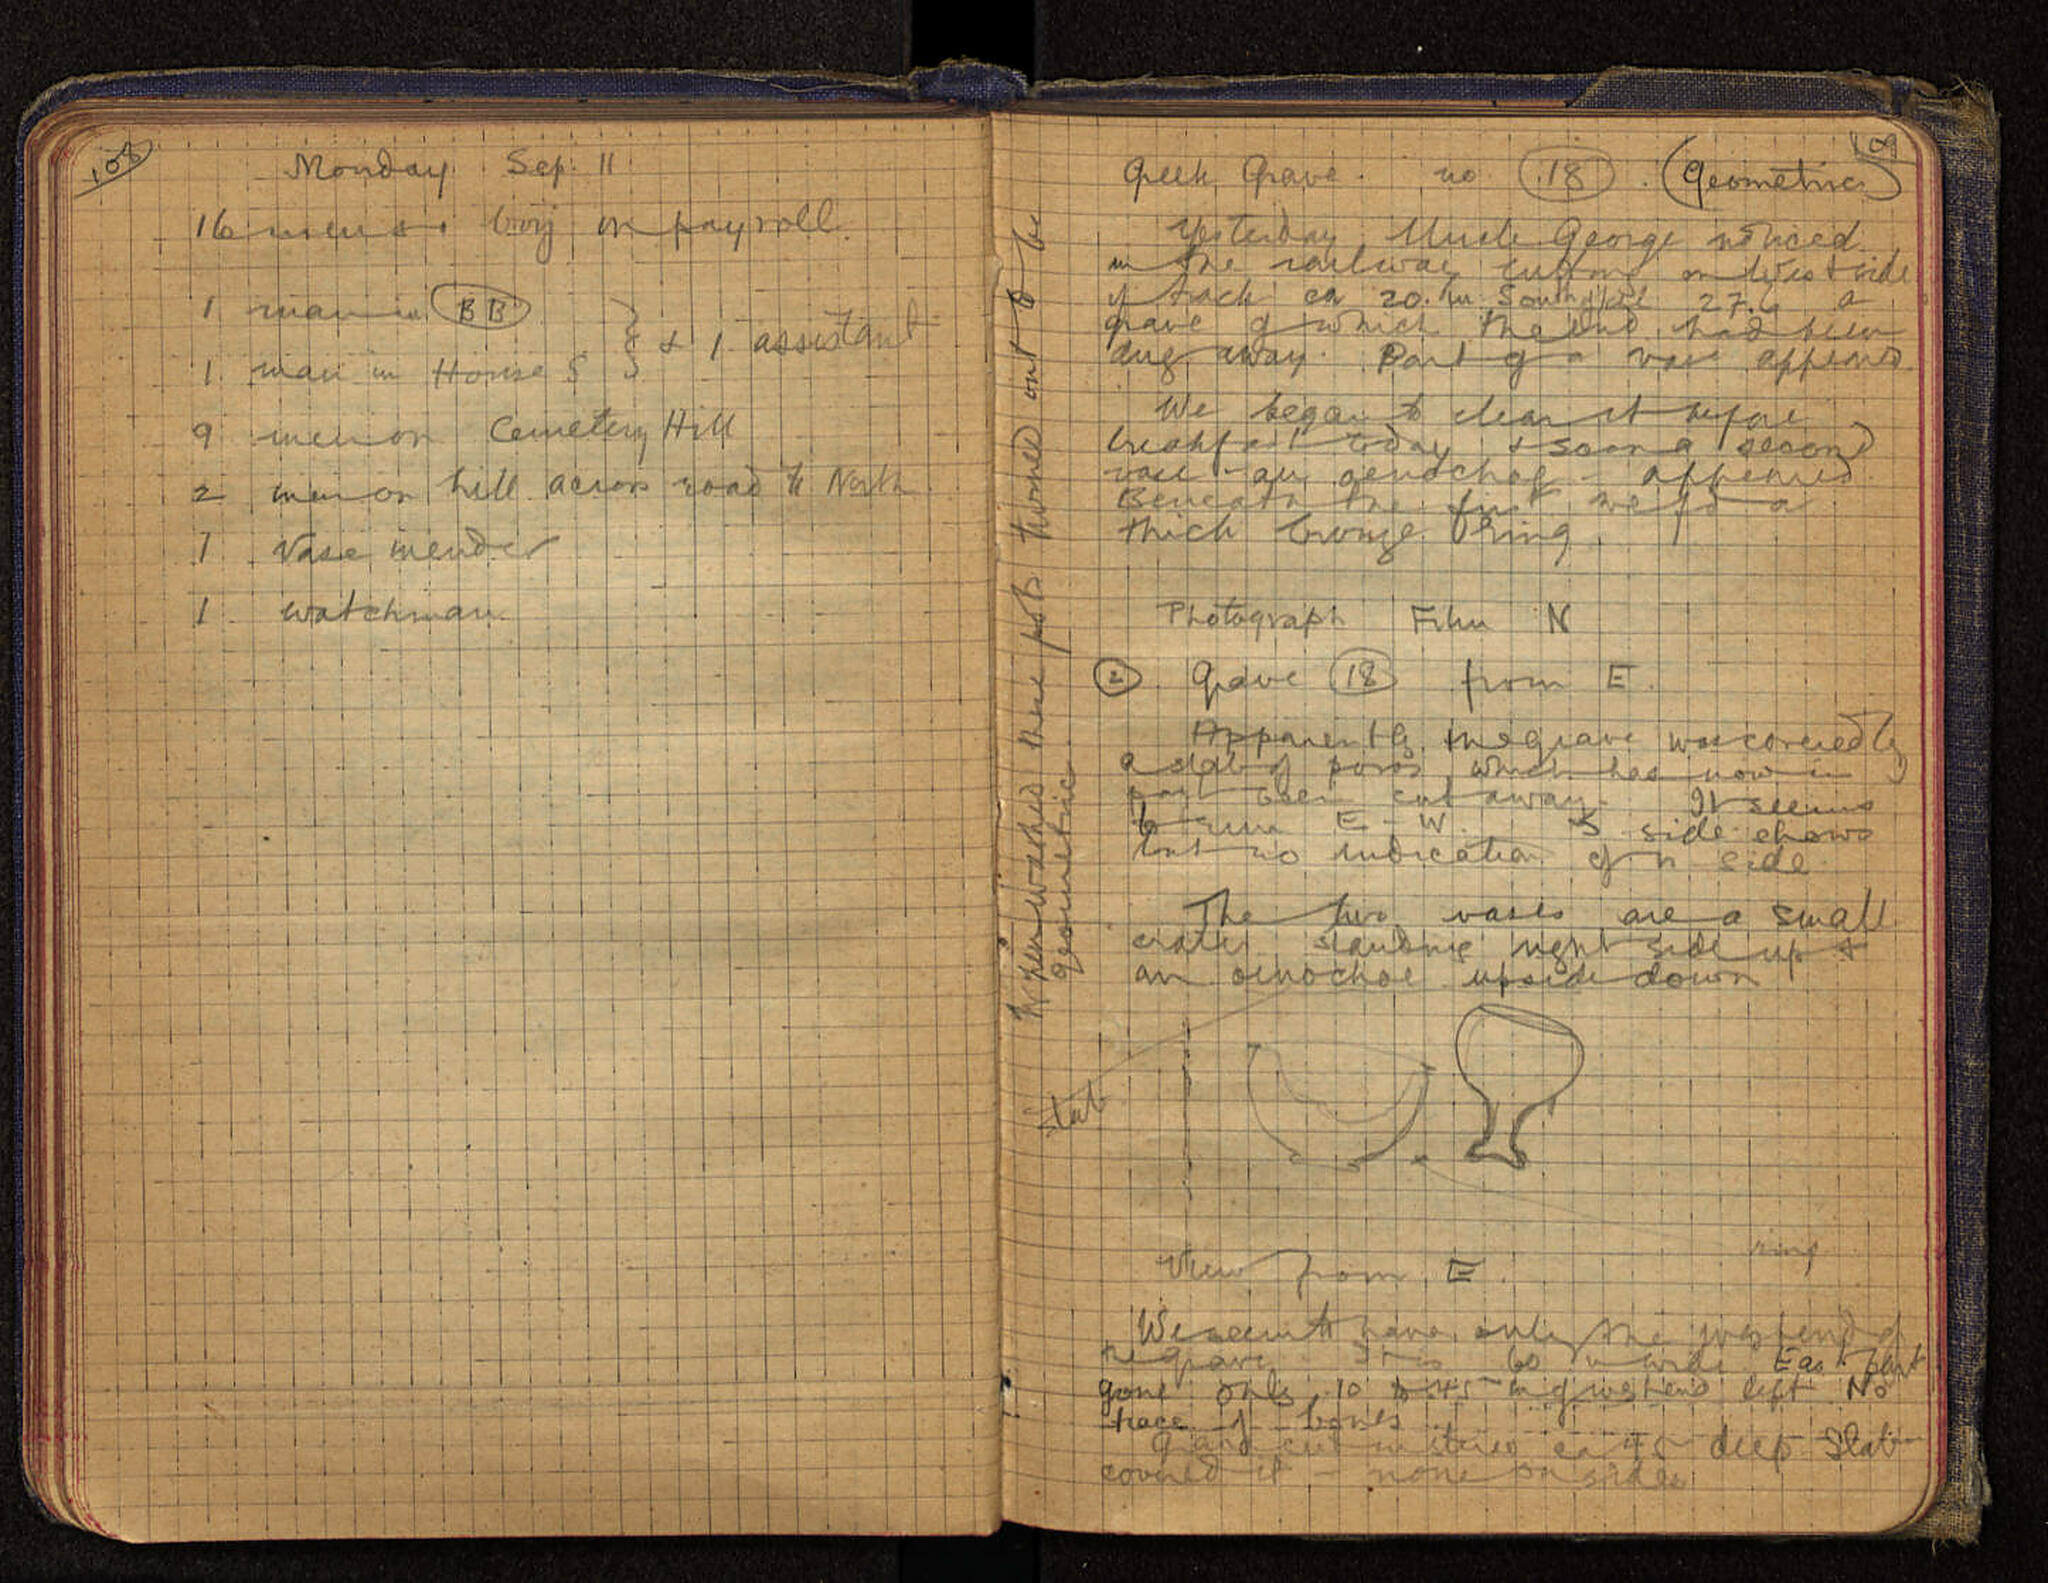 108
Monday Sep. 11
16 men & 1 boy on payroll
1 man in BB
1 man in House S
} & 1 assistant
9 men on Cemetery Hill
2 men on hill across road to North
1 Vase mender
1 watchman
109
Greek Grave. no. 18. (Geometric)
Yesterday Uncle George noticed
in the railway cutting on West side
of track ca 20. m South of 27.6 a
grave of which the end had been
dug away. Part of a vase appears.
We began to clear it before
breakfast today & soon a second
vase - an oenochoe - appeared
Beneath the first we fd a
thick bronze ring
Photograph Film N
2 Grave 18 from E.
Apparently the grave was covered by
a slab of poros which has now in
part been cut away. It seems
to run E - W. S side shows
but no indication of n side
The two vases are a small
crater standing right side up &
an oinochoe upside down
slab
ring
View from E.
We seem to have only the west end of
the grave. It is 60 wide East part
gone only 10 to 45 of west end left No
trace of bones
Grave cut in stereo ca 45 deep Slab
covered it - none on sides
When washed these pots turned out to be
geometric